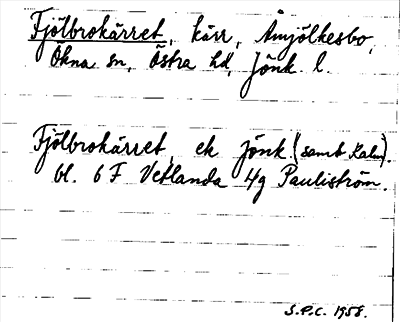 Fjölbrokärret, kärr, Åmjölkesbo,
Ökna sn, Östra hd, Jönk. l.
Fjölbrokärret, ek Jönk. (samt Kalm).
bl. 6 F Vetlanda 4g Pauliström.
S.P.C. 1958.